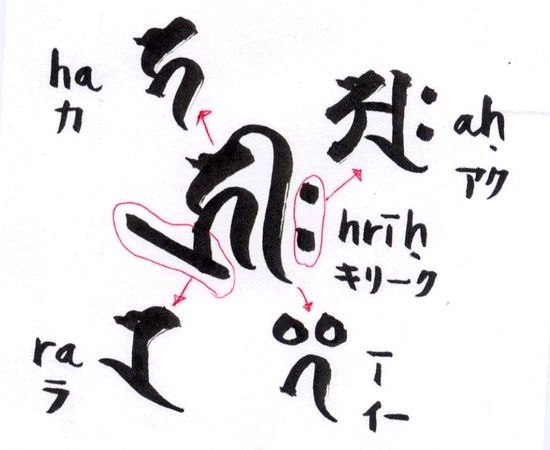 𑖮
ha
カ
𑖀𑖾
aḥ
アク
𑖮𑖿𑖨𑖱𑖾
hrīḥ
キリーク
𑖨
ra
ラ
𑖃
ī
イー